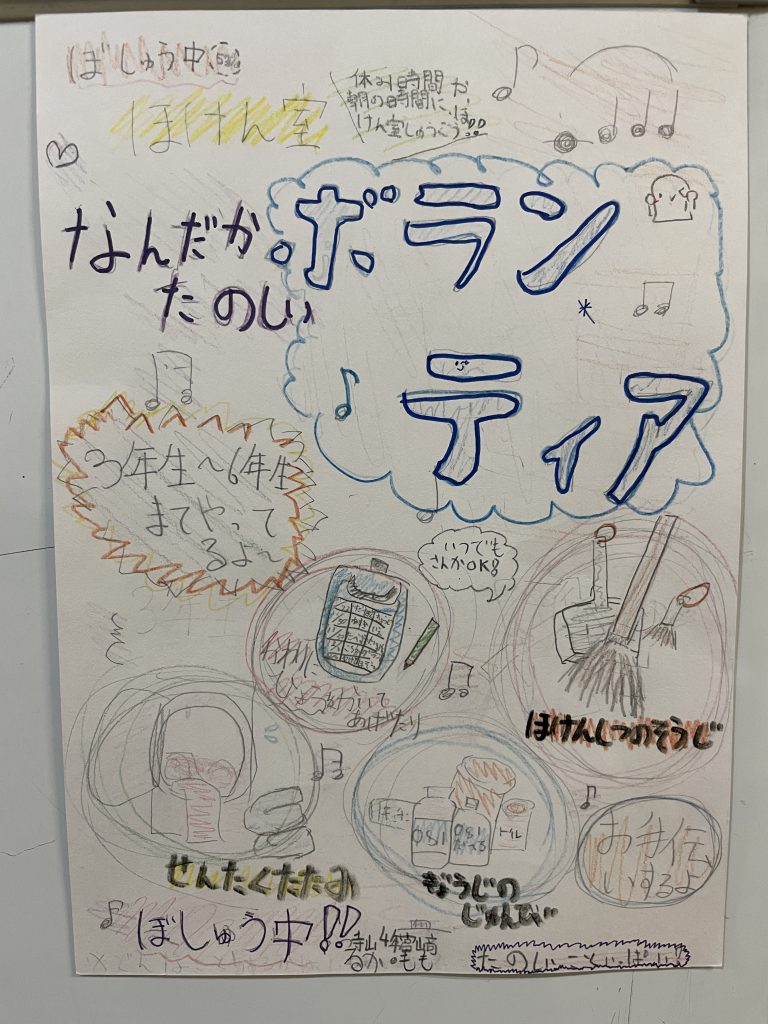 ぼしゅう中
ほけん室
休み時間か
朝の時間に、ほ
けん室しゅうごう!!
なんだか
たのしい
ボラン
ティア
3年生～6年生
までやって
るよ～
いつでも
さんかOK!
かわりに
ひょうをかいて
あげたり
ほけんしつのそうじ
せんたくたたみ
トイレ
ぎょうじの
じゅんび
お手伝
いするよ
ぼしゅう中!!
4年
たのしいこといっぱい!!